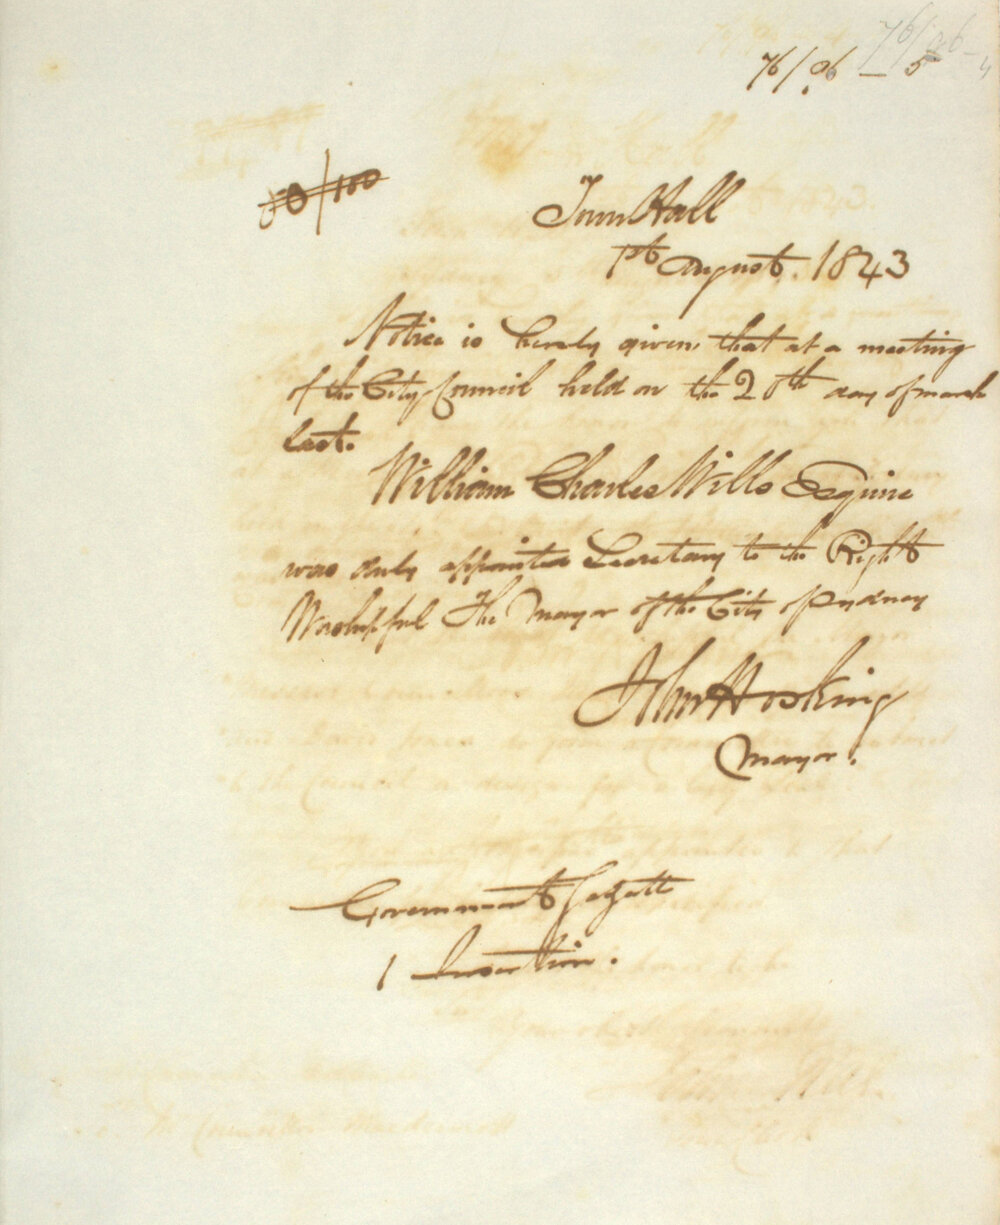 76/96 - 5
50/100
Town Hall
1st August. 1843
Notice is hereby given, that at a meeting
of the City Council held on the 20th day of march
last.
William Charles Wills Esquire
was duly appointed Secretary to the Right
Worshipful The Mayor of the City of Sydney
John Hosking
Mayor.
Government Gazette
1 Insertion.